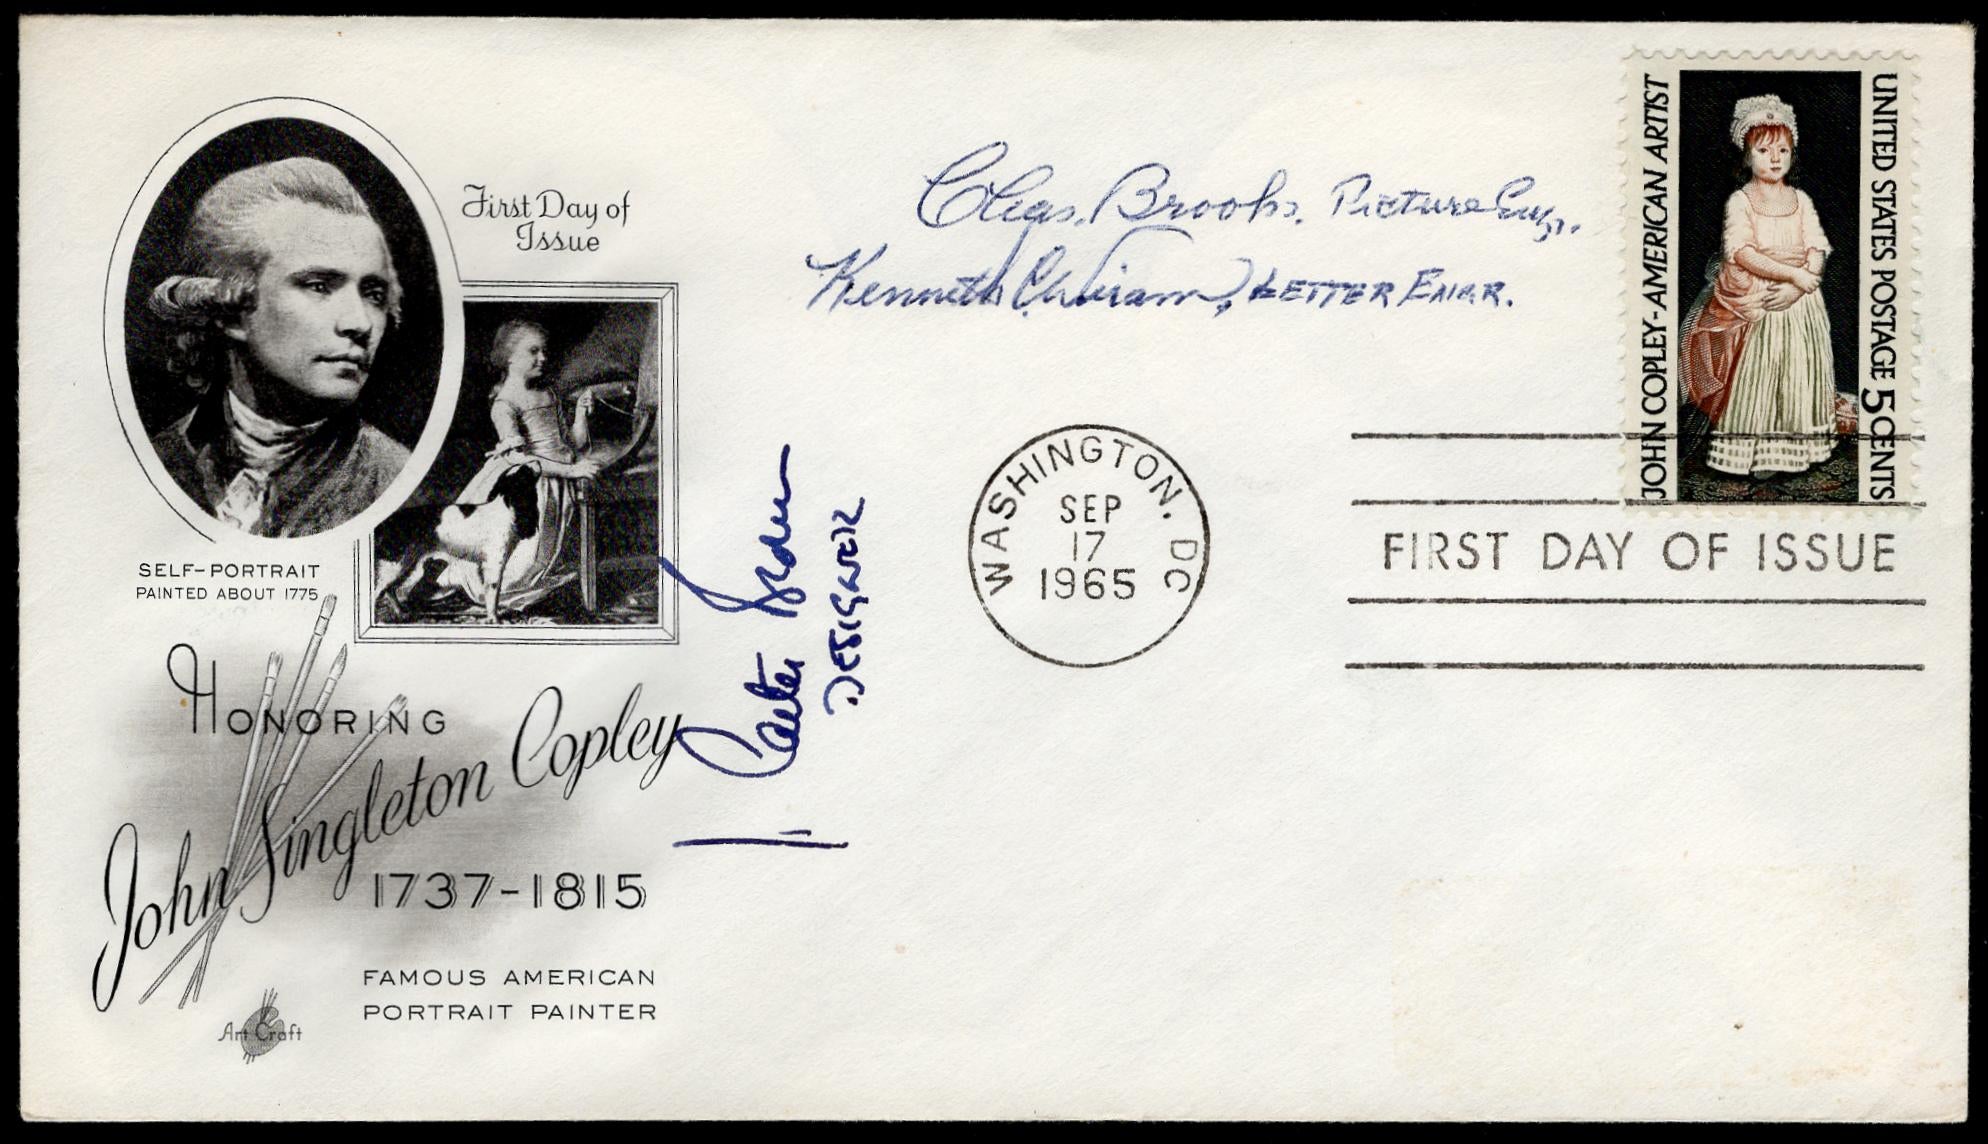 First Day of
Issue
SELF-PORTRAIT
PAINTED ABOUT 1775
HONORING
John Singleton Copley
1737-1815
FAMOUS AMERICAN
PORTRAIT PAINTER
Art Craft
DESIGNER
Chas. Brooks, Picture Engr.
Kenneth C. Wiram, LETTER ENGR.
WASHINGTON, DC
SEP
17
1965
JOHN COPLEY-AMERICAN ARTIST
UNITED STATES POSTAGE 5 CENTS
FIRST DAY OF ISSUE